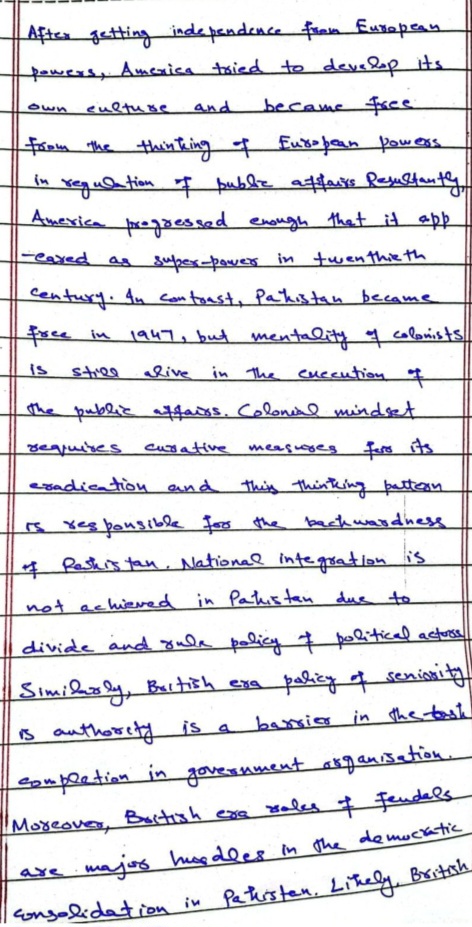 After getting independence from European
powers, America tried to develop its
own culture and became free
from the thinking of European Powers
in regulation of public affairs Resultantly,
America progressed enough that it app
-eared as super-power in twenthieth
century. In contrast, Pakistan became
free in 1947, but mentality of colonists
is still alive in the execution of
the public affairs. Colonial mindset
requires curative measures for its
eradication and this thinking pattern
is responsible for the backwardness
of Pakistan. National integration is
not achieved in Pakistan due to
divide and rule policy of political actors
Similarly, British era policy of seniority
is authority is a barrier in the task
completion in government organisation.
Moreover, British era roles of feudals
are major huddles in the democratic
consolidation in Pakistan. Likely, British